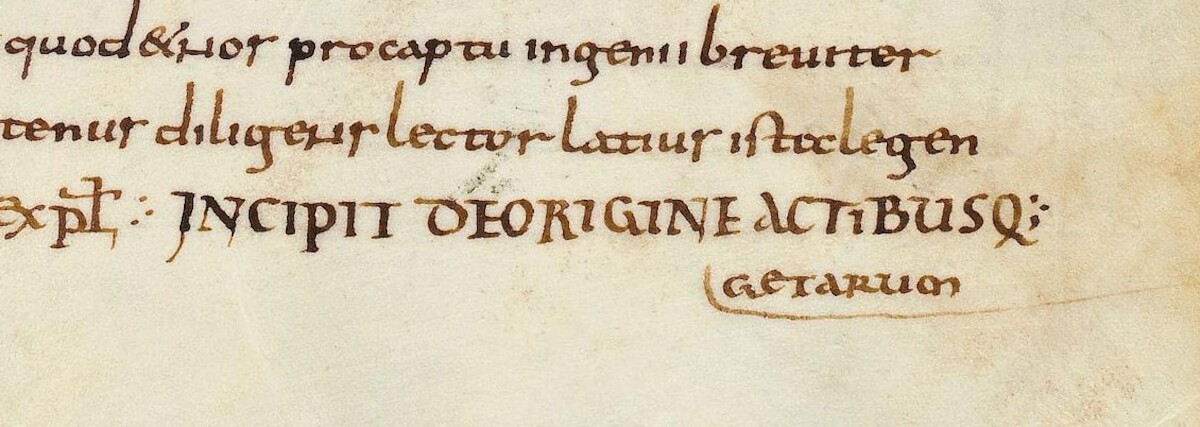 quod & nos pro captu ingenii breviter
tenus diligens lector latius isto legen
expł INCIPIT DE ORIGINE ACTIBUSQ;
GETARUM